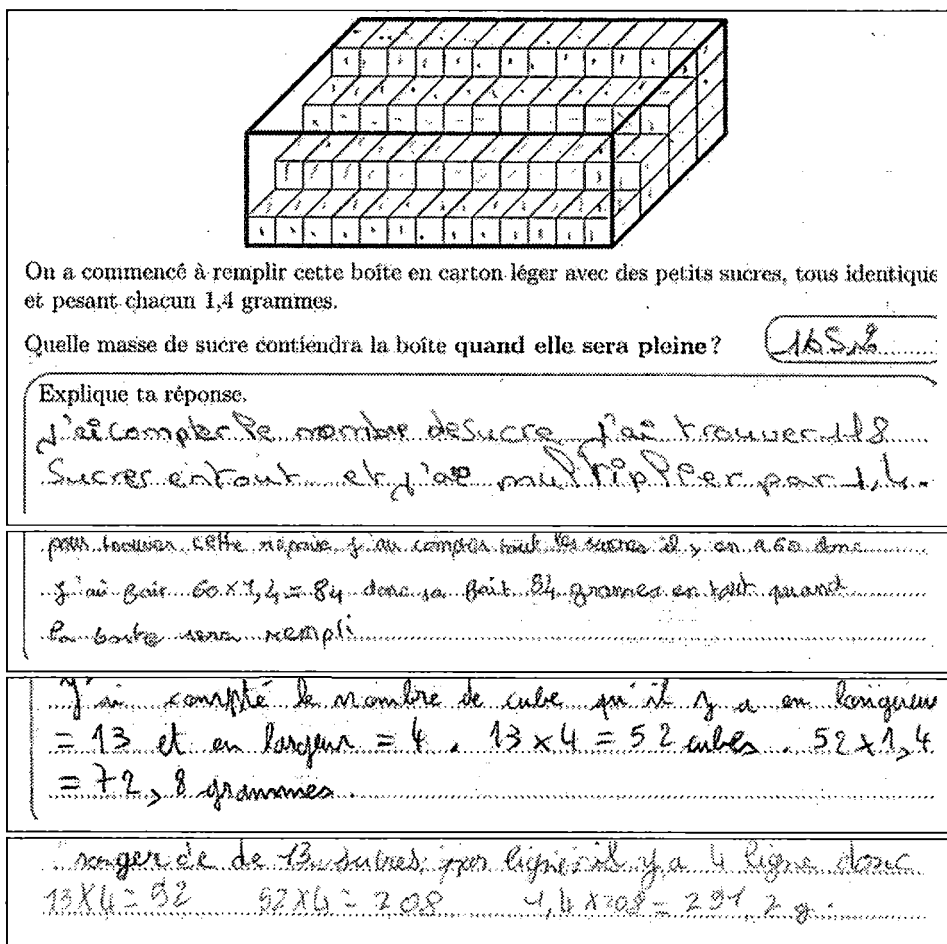 On a commencé à remplir cette boîte en carton léger avec des petits sucres, tous identique
et pesant chacun 1,4 grammes.
Quelle masse de sucre contiendra la boîte quand elle sera pleine? 165,2
Explique ta réponse.
j'ai compter le nombre de sucre j'ai trouver 118
Sucres entout et j'ai multiplier par 1,4.
pour trouver cette réponse j'ai compter tout les sucres il y en a 60 donc
j'ai fait 60 x 1,4 = 84 donc sa fait 84 grammes en tout quand
la boite sera rempli
J'ai compté le nombre de cube qu'il y a en longueur
= 13 et en largeur = 4 . 13 x 4 = 52 cubes . 52 x 1,4
= 72,8 grammes.
de 13 sucres par ligne il y a 4 ligne donc
13X4 = 52 52X4 = 208 1,4 X208 = 291,2 g.